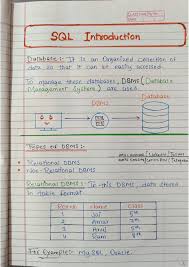 SQL Introduction
Database:- It is an Organized Collection of
data so that it can be easily accessed.
To manage these databases, DBMS (Database
Management System) are used.
Database
DBMS
Types of DBMS:-
Relational DBMS
Non-Relational DBMS
Relational DBMS:- In this DBMS, data stored
in table format.
Name Class
1 Jai 5th
2
3
4 Ram 8th
For Example:- MySQL, Oracle.